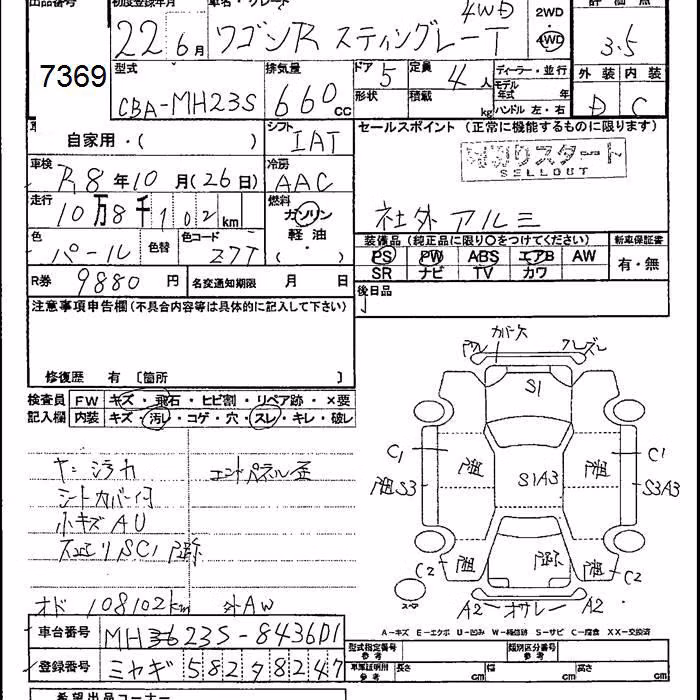 出品番号 初度登録年月 車名・グレード 評価点
22年6月 ワゴンR スティングレーT 4WD 2WD 4WD 3.5
7369 型式 排気量 ドア 5 定員 4人 ディーラー・並行 外装 内装
CBA-MH23S 660cc 形状 積載 kg モデル年式 年 D C
ハンドル 左・右
自家用・( ) シフト IAT セールスポイント (正常に機能するものに限ります)
車検 R8年10月(26日) 冷房 AAC 売切りスタート
SELLOUT
走行 10万8千102km 燃料 ガソリン 軽油 ( ・ ) 社外アルミ
色 パール 色替 色コード Z7T 装備品 (純正品に限り○をつけてください) 新車保証書
PS PW ABS エアB AW 有・無
SR ナビ TV カワ
R券 9880円 名変通知期限 月 日 後日品
注意事項申告欄(不具合内容等は具体的に記入して下さい)
修復歴 有 〔箇所 〕
検査員 FW キズ・飛石・ヒビ割・リペア跡・×要
記入欄 内装 キズ・汚レ・コゲ・穴・スレ・キレ・破レ
カバー欠
S1
C1 C1
S3 S1A3 S3A3
C2 C2
A2 A2
エンドパネル歪
シートカバー付
小キズAU
オド 108102km 外AW
A-キズ E-エクボ U-凹み W-補修跡 S-サビ C-腐食 XX-交換済
車台番号 MH23S-843601
登録番号 ミヤギ 582 タ 8247
型式指定番号 参考 類別区分番号 参考
車庫証明用 参考 長さ cm 幅 cm 高さ cm
希望出品コーナー